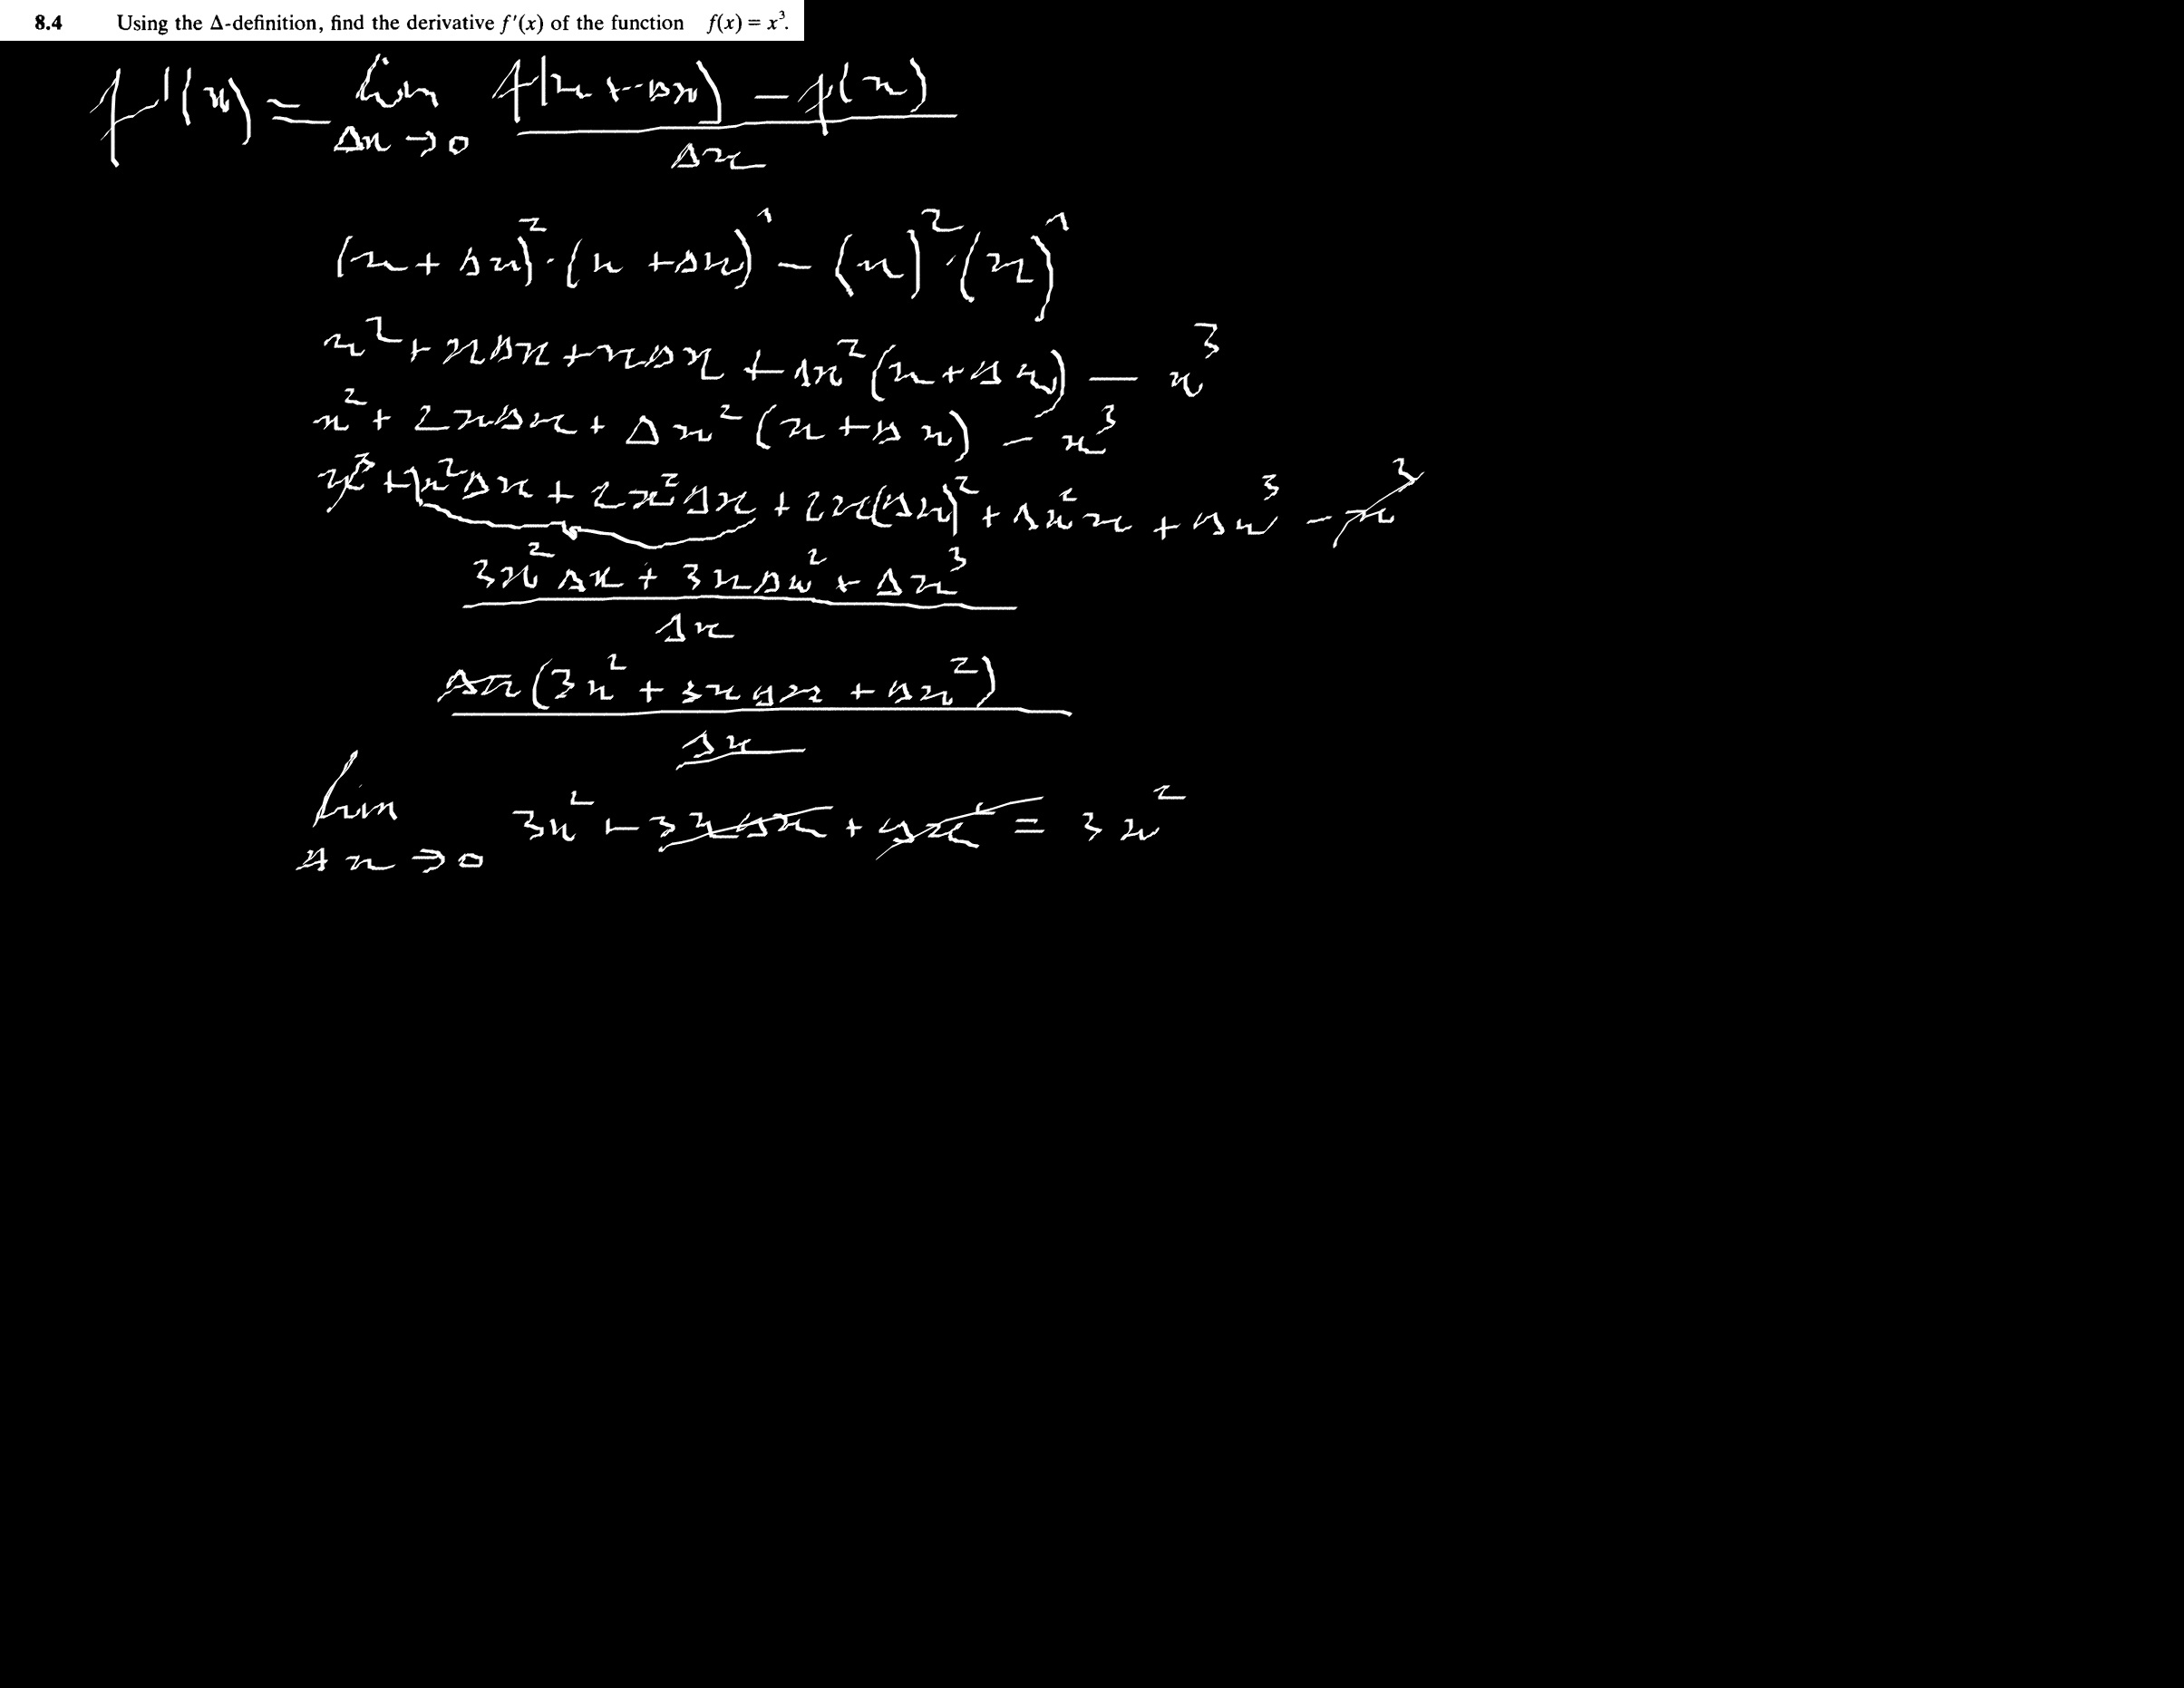 8.4 Using the Δ-definition, find the derivative f'(x) of the function f(x) = x³.
f'(x) = lim Δx→0 (f(x + Δx) - f(x)) / Δx
(x + Δx)² · (x + Δx)¹ - (x)² · (x)¹
x² + xΔx + xΔx + Δx² (x + Δx) - x³
x² + 2xΔx + Δx² (x + Δx) - x³
x³ + x²Δx + 2x²Δx + 2x(Δx)² + Δx²x + Δx³ - x³
(3x²Δx + 3xΔx² + Δx³) / Δx
Δx(3x² + 3xΔx + Δx²) / Δx
lim Δx→0 3x² + 3xΔx + Δx² = 3x²